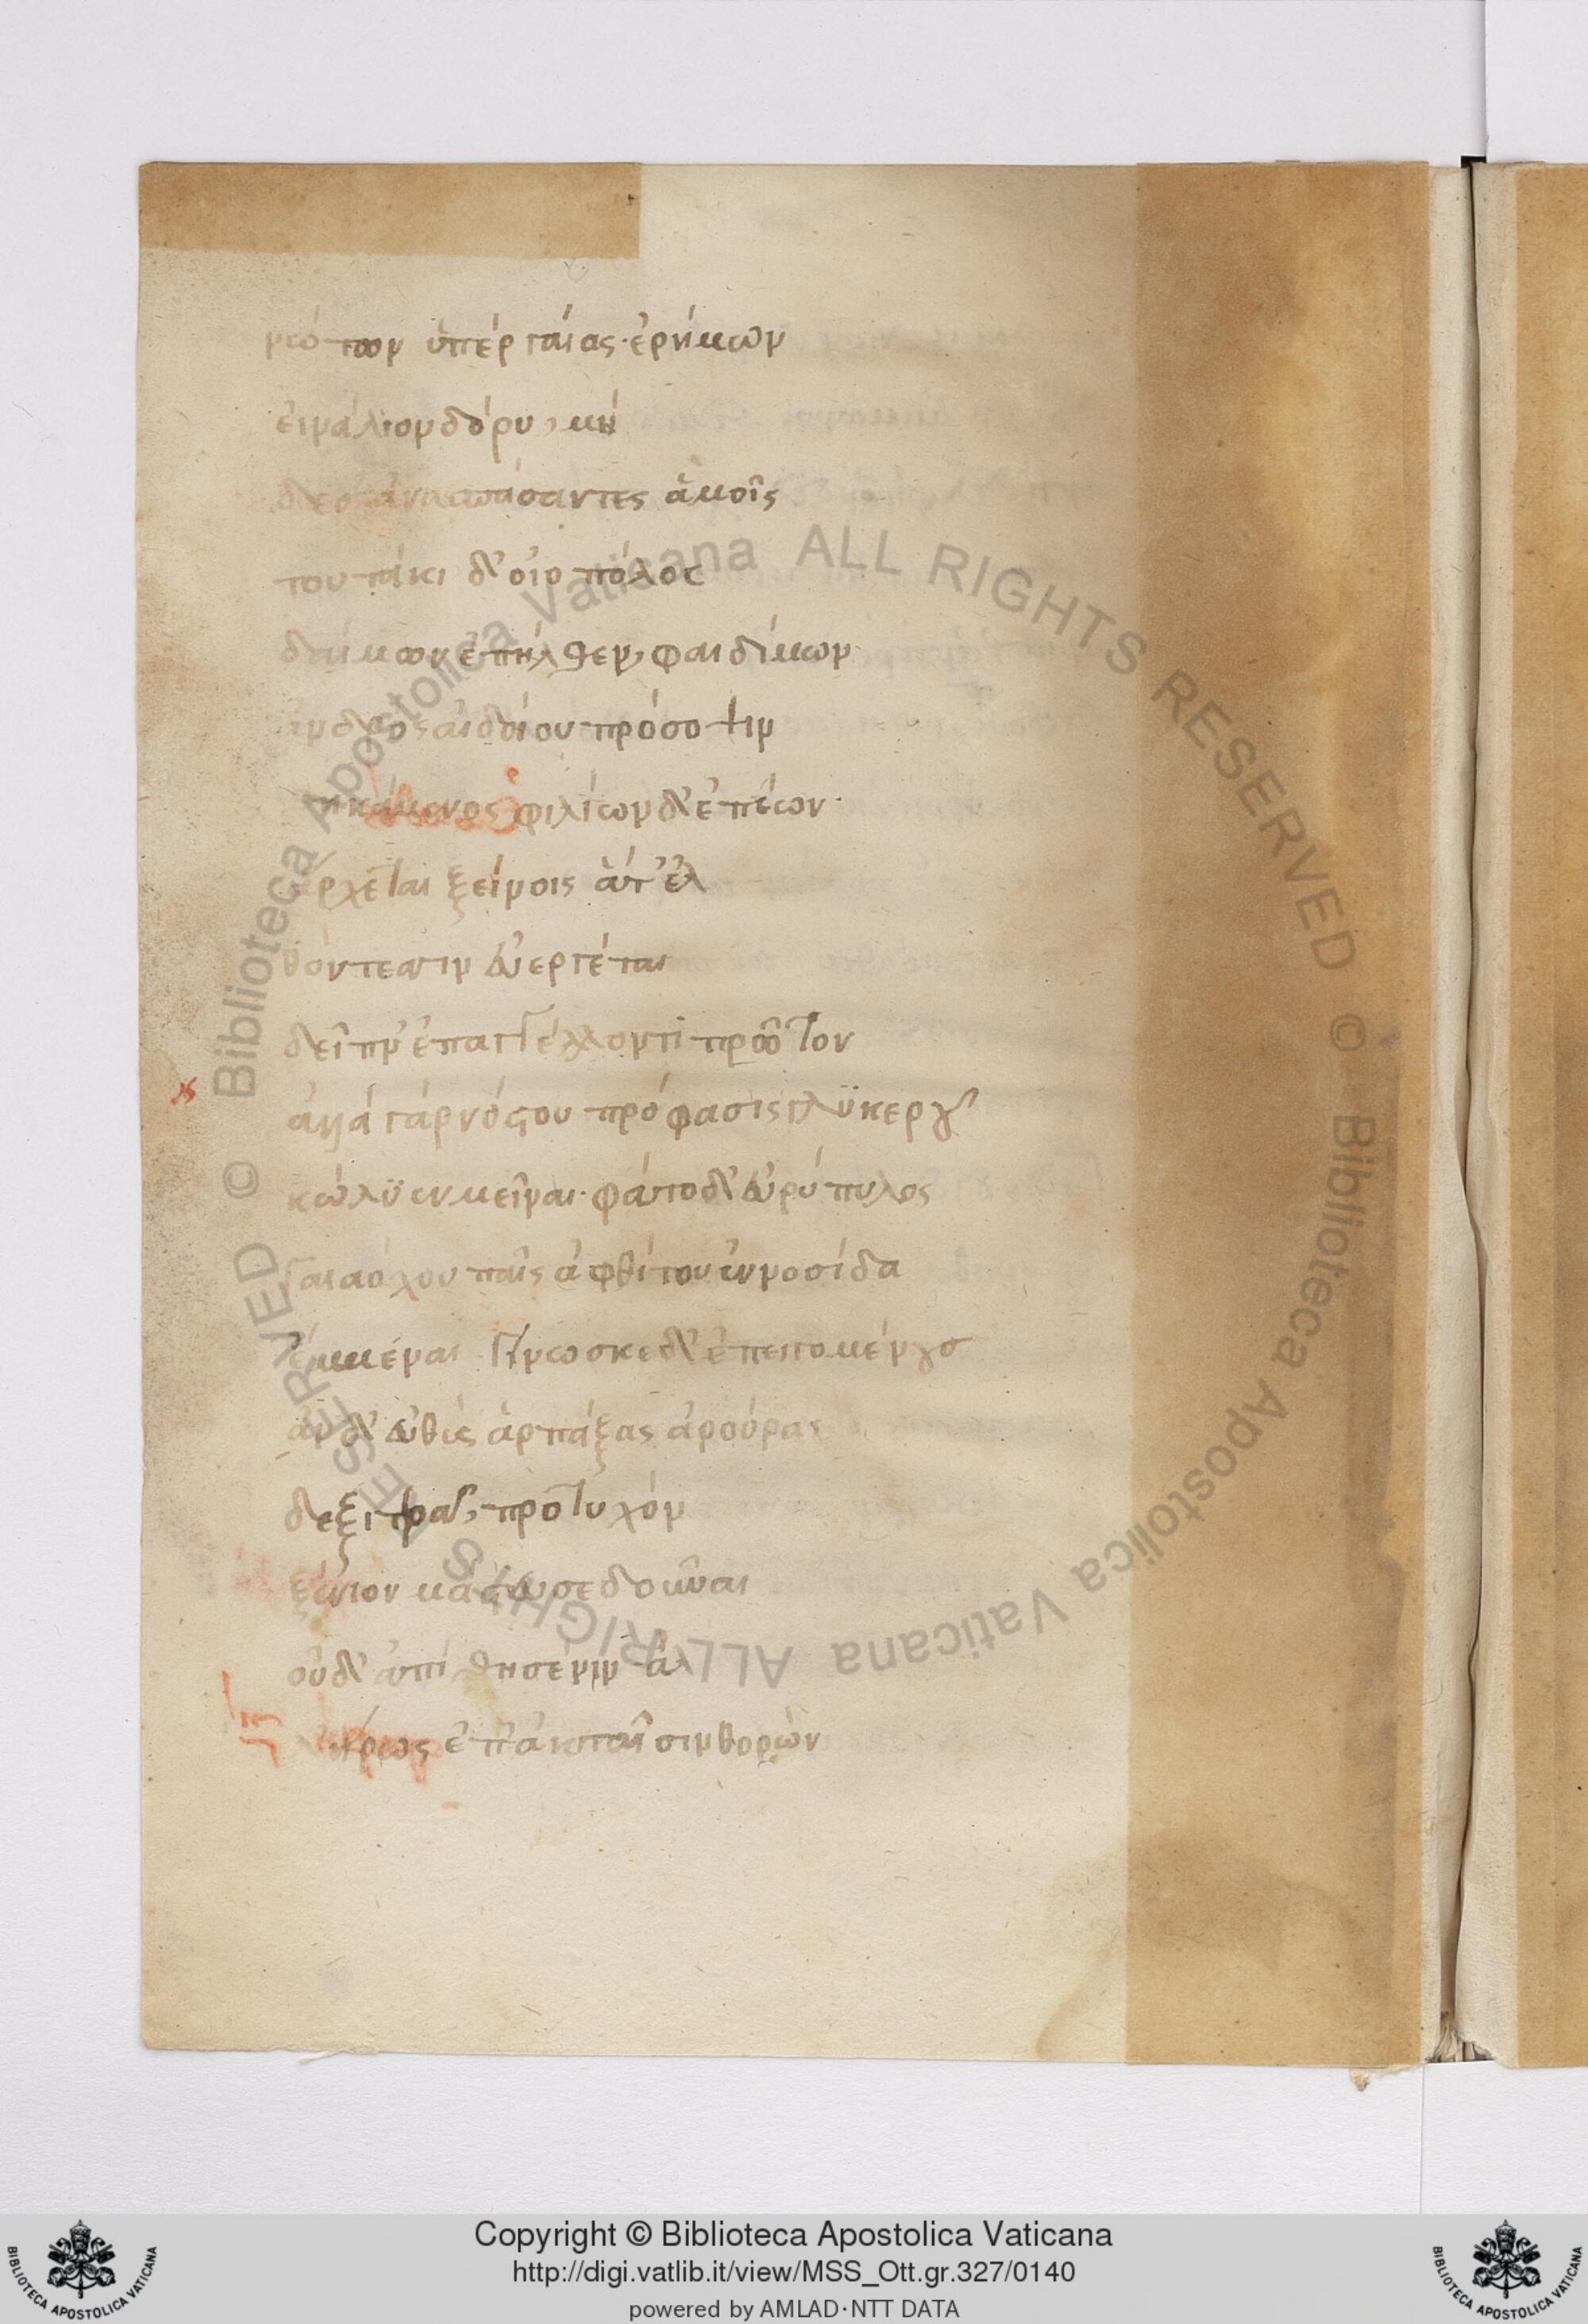 νώτων ὑπὲρ γαίας ἐρήμων
εἰνάλιον δόρυ, μή
δεσιν ἀνσπάσαντες ἀμοῖς
τουτάκι δ' οἰοπόλος
δαίμων ἐπῆλθεν, φαιδίμων
ἀνδρὸς αἰδοίου πρόσοψιν
θηκάμενος φιλίων δ' ἐπέων·
ἄρχεται ξείνοις ἅτ' ἐλ
θόντεσσιν εὐεργέται
δεῖπν' ἐπαγγέλλοντι πρῶτον
ἀλλὰ γὰρ νόστου πρόφασις γλυκεροῦ
κώλυεν μεῖναι· φάτο δ' εὐρύπυλος
γαιαόχου παῖς ἀφθίτου ἐννοσίδα
ἔμμεναι γίνωσκε δ' ἐπειγομένους
ἂν δ' εὐθὺς ἁρπάξας ἀρούρας
δεξιτερᾶς, προτυχόν
ξένιον μάστευσε δοῦναι
οὐδ' ἀπίθησέ νιν ἀλ
ἥρως ἐπ' ἀκταῖσιν θορών
Biblioteca Apostolica Vaticana ALL RIGHTS RESERVED © Biblioteca Apostolica Vaticana ALL RIGHTS RESERVED ©
Copyright © Biblioteca Apostolica Vaticana
http://digi.vatlib.it/view/MSS_Ott.gr.327/0140
powered by AMLAD·NTT DATA
BIBLIOTECA APOSTOLICA VATICANA
BIBLIOTECA APOSTOLICA VATICANA